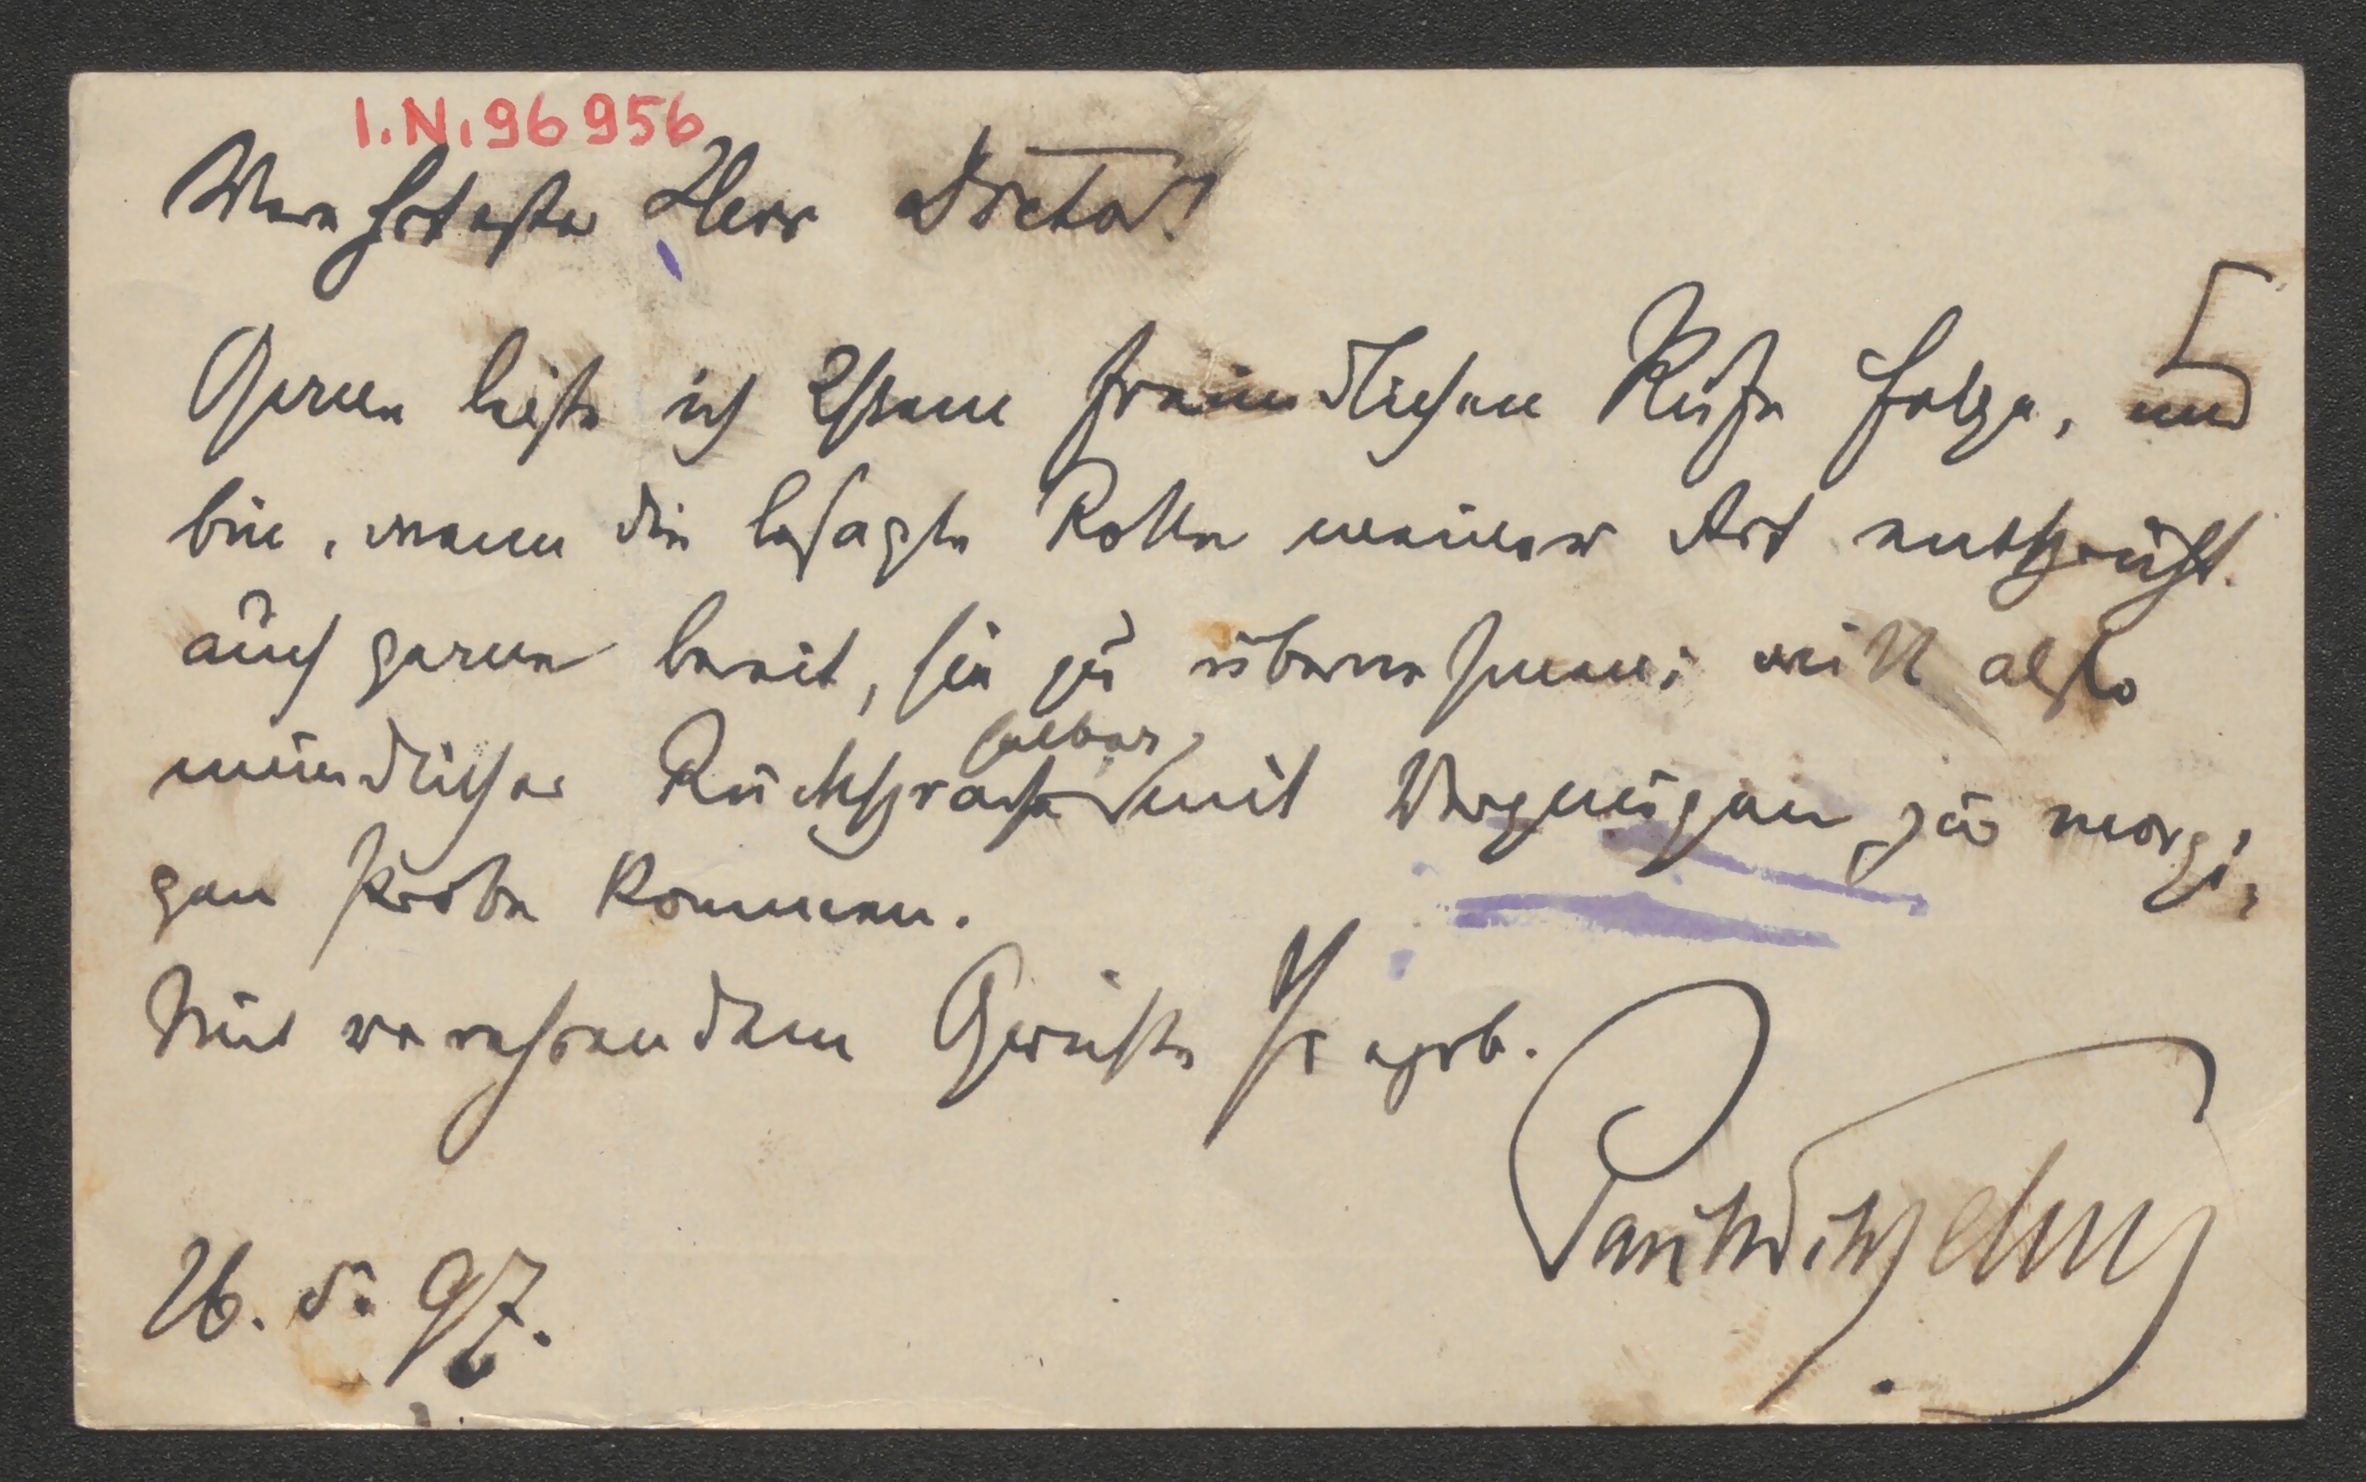 I.N. 96956
Verehrtester Herr Doctor!
Gerne leiste ich Ihrem freundlichen Rufe Folge, und
bin, wenn die besagte Rolle meiner Art entspricht
auch gerne bereit, sie zu übernehmen; will also
mündlicher Rücksprache halber mit Vergnügen zur morgi-
gen Probe kommen.
Mit verehrendem Gruße Ihr ergb.
26. 5. 97.